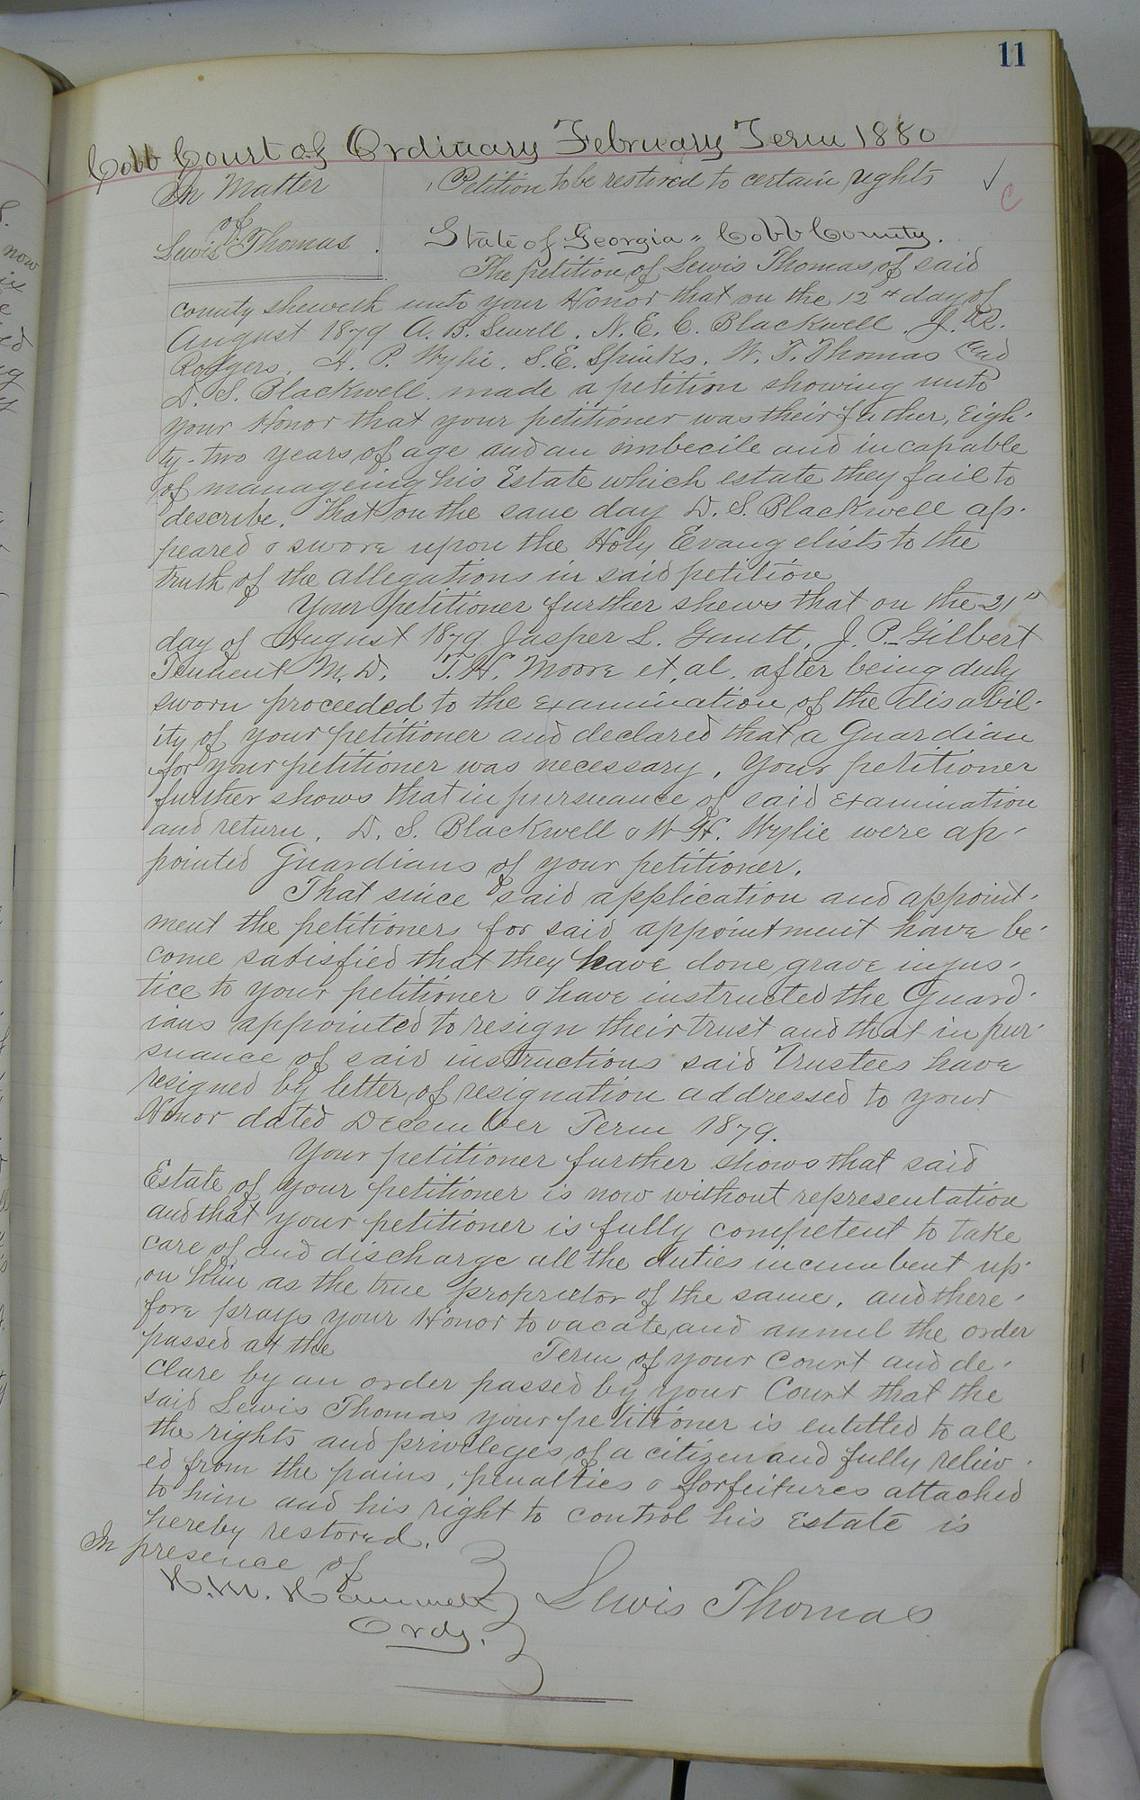 11
Cobb Court of Ordinary February Term 1880
In Matter
of
Lewis Thomas
Petition to be restored to certain rights
State of Georgia " Cobb County.
The petition of Lewis Thomas of said
county sheweth unto your Honor that on the 12th day of
August 1879 A. B. Sewell, N. E. C. Blackwell. J. R.
Rodgers, A. P. Wylie, S. E. Spinks, W. T. Thomas and
D. S. Blackwell made a petition showing unto
your Honor that your petitioner was their father, Eigh-
ty-two years of age and an imbecile and incapable
of manageing his Estate which estate they fail to
describe. That on the same day D. S. Blackwell ap-
peared & swore upon the Holy Evangelists to the
truth of the allegations in said petition
Your petitioner further shews that on the 21st
day of August 1879 Jasper L. J. P. Gilbert
Tennent M. D. T. H. Moore et, al, after being duly
sworn proceeded to the examination of the disabil-
ity of your petitioner and declared that a Guardian
for your petitioner was necessary. Your petitioner
further shows that in pursuance of said examination
and return, D. S. Blackwell & W. H. Wylie were ap-
pointed Guardians of your petitioner.
That since said application and appoint-
ment the petitioners for said appointment have be-
come satisfied that they have done grave injus-
tice to your petitioner & have instructed the Guard-
ians appointed to resign their trust and that in pur-
suance of said instructions said Trustees have
resigned by letter, of resignation addressed to your
Honor dated December Term 1879.
Your petitioner further shows that said
Estate of your petitioner is now without representation
and that your petitioner is fully competent to take
care of and discharge all the duties incumbent up-
on him as the true proprietor of the same, and there-
fore prays your Honor to vacate and annul the order
passed at the Term of your Court and de-
clare by an order passed by your Court that the
said Lewis Thomas your petitioner is entitled to all
the rights and privileges of a citizen and fully reliev-
ed from the pains, penalties & forfeitures attached
to him and his right to control his Estate is
hereby restored.
In presence of
H. M. Hammett
Ordy.
Lewis Thomas